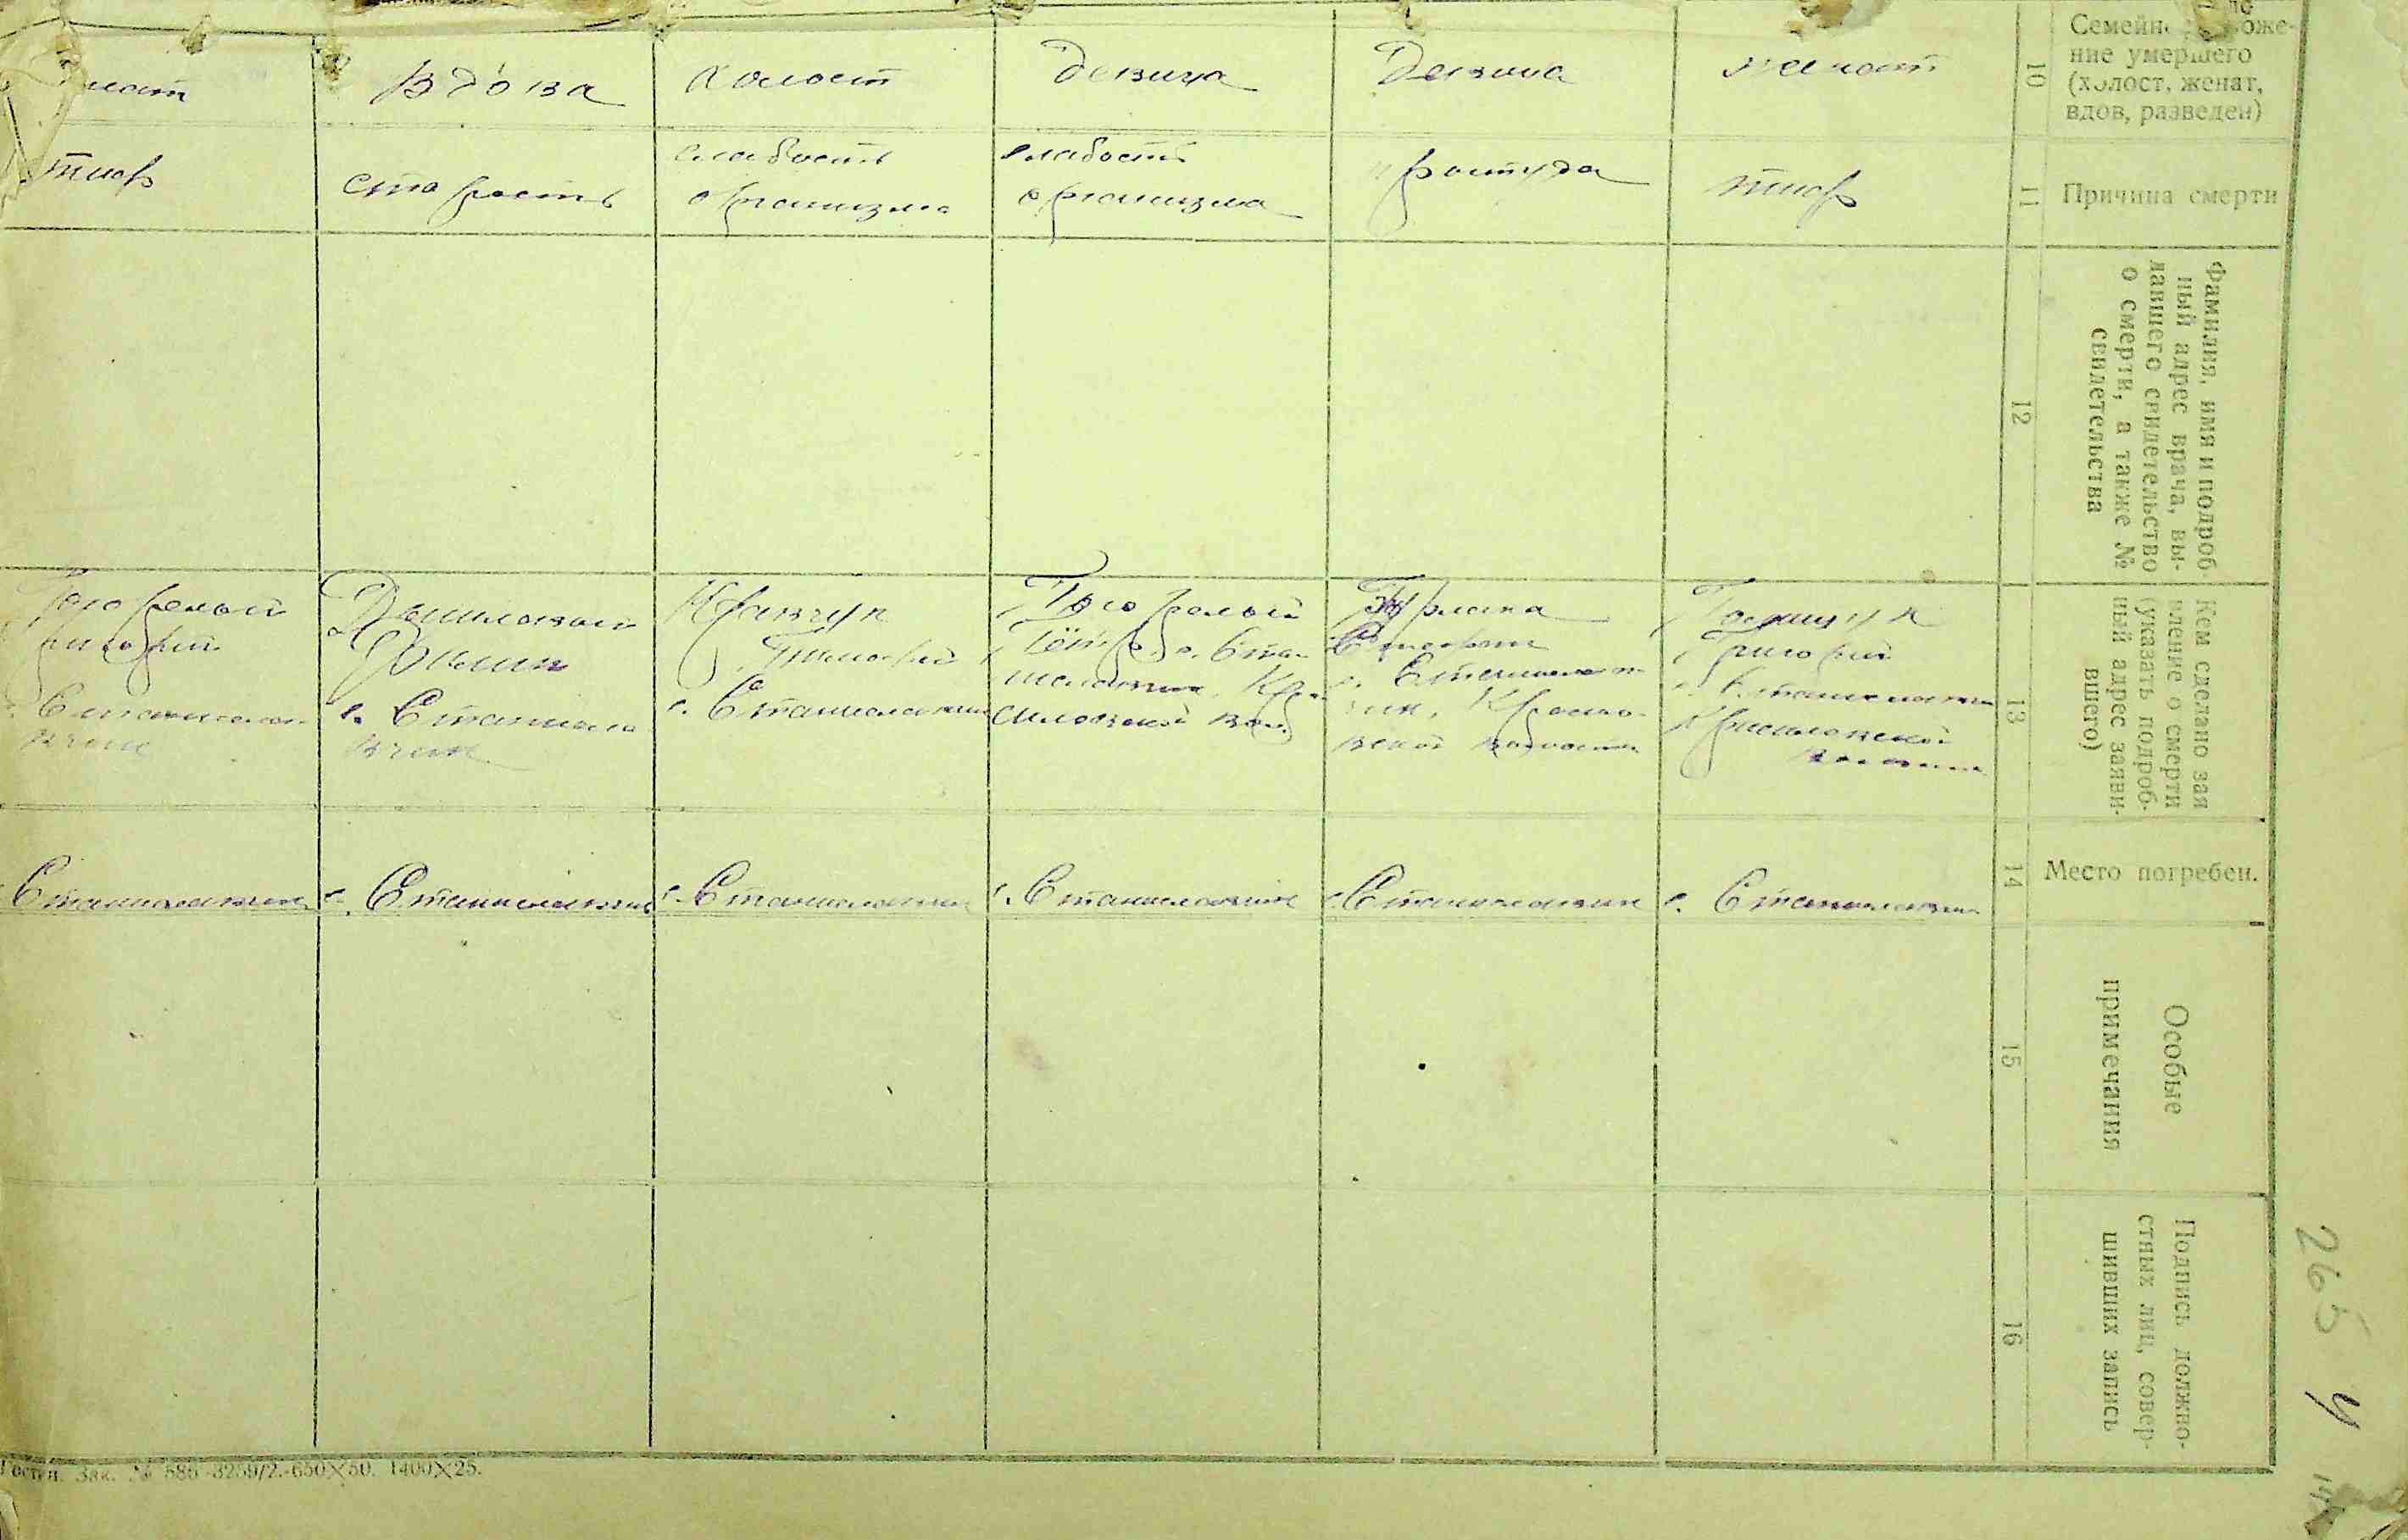 вдова
холост
девица
Девица
женат
10
Семейн
ние умершего
(холост, женат,
вдов, разведен)
тиф
старость
слабость
организма
слабость
организма
простуда
тиф
11
Причина смерти
12
Фамилия, имя и подроб-
ный адрес врача, вы-
давшего свидетельство
о смерти, а также №
свидетельства
Григорий
с. Станиславчик
Кравчук
Тимофей
с. Станиславчик
Пётр, с. Ста-
ниславчик, Кра-
силовской вол.
Стефан
с. Станислав-
чик, Красило-
вской волости
Григорий
с. Станиславчик
Красиловской
волости
13
Кем сделано зая
вление о смерти
(указать подроб-
ный адрес заяви-
вшего)
Станиславчик
с. Станиславчик
с. Станиславчик
с. Станиславчик
с. Станиславчик
с. Станиславчик
14
Место погребен.
15
Особые
примечания
16
Подпись должно-
стных лиц, совер-
шивших запись
265